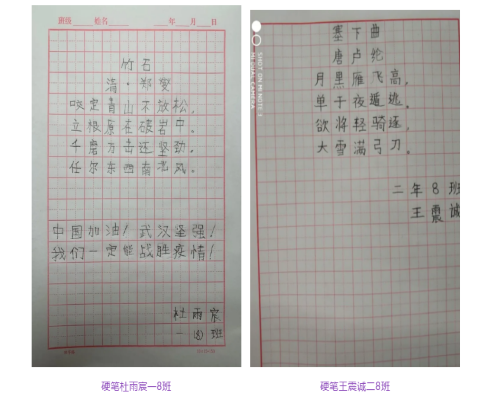 班级 姓名 年 月 日
竹石
清·郑燮
咬定青山不放松,
立根原在破岩中。
千磨万击还坚劲,
任尔东西南北风。
中国加油!武汉坚强!
我们一定能战胜疫情!
杜雨宸
一⑧班
塞下曲
唐卢纶
月黑雁飞高,
单于夜遁逃。
欲将轻骑逐,
大雪满弓刀。
二年8班
王震诚
硬笔杜雨宸一8班
硬笔王震诚二8班